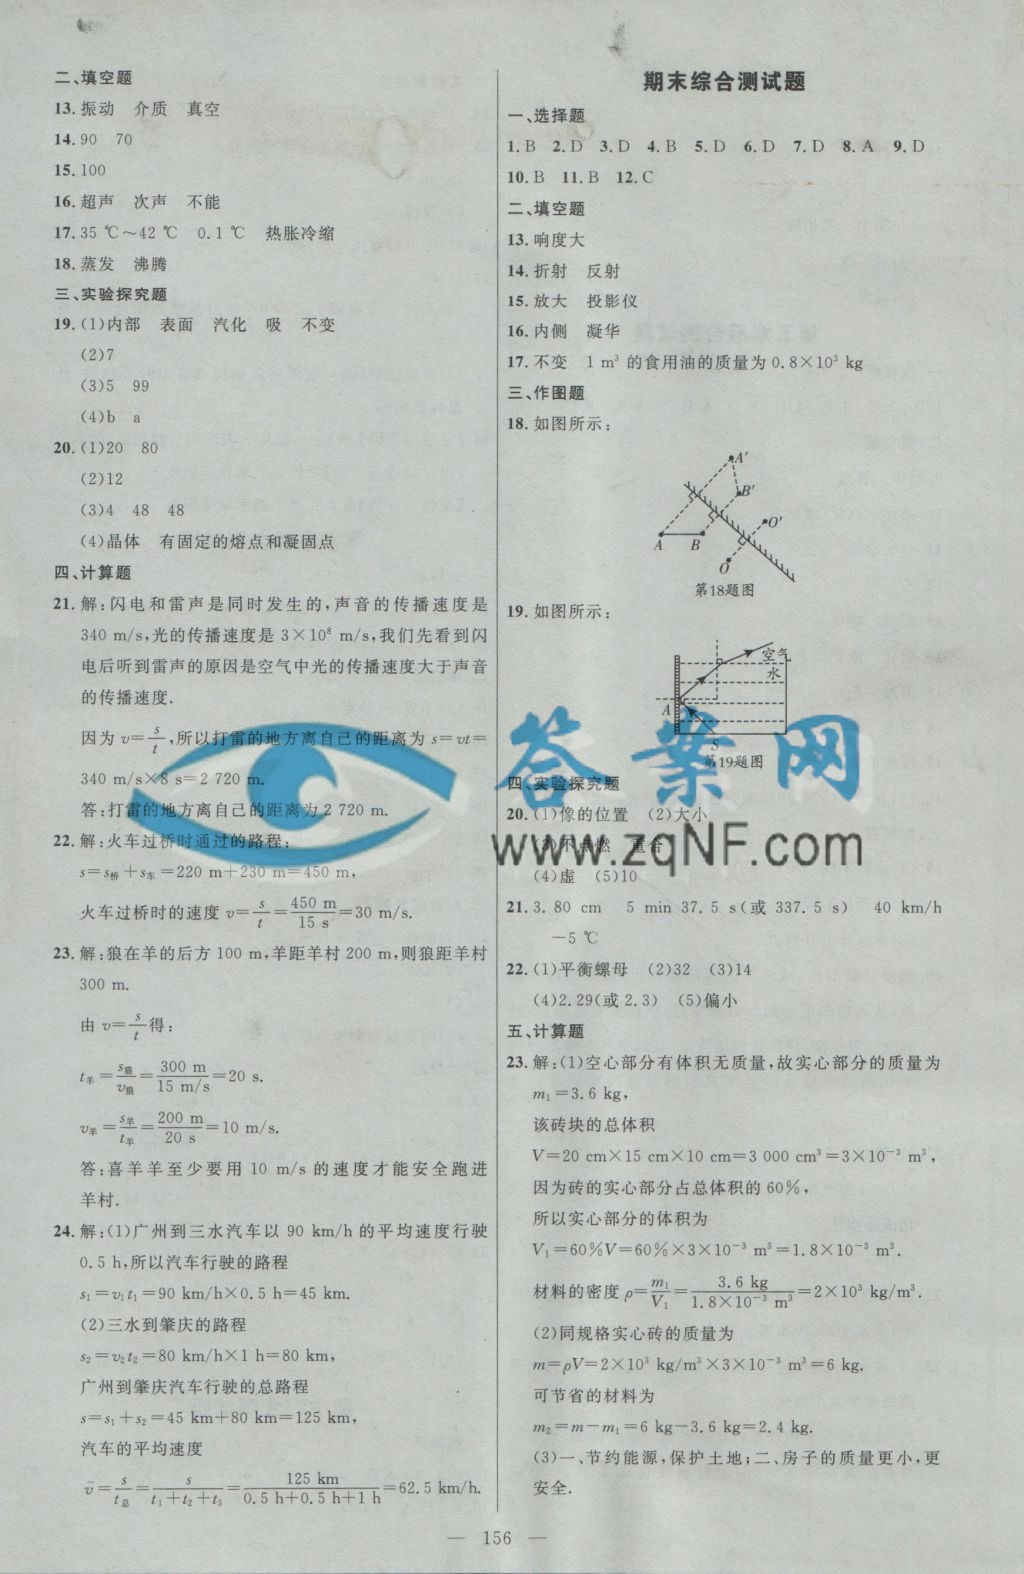 二、填空题
13.振动 介质 真空
14.90 70
15.100
16.超声 次声 不能
17.35 ℃～42 ℃ 0.1 ℃ 热胀冷缩
18.蒸发 沸腾
三、实验探究题
19.(1)内部 表面 汽化 吸 不变
(2)7
(3)5 99
(4)b a
20.(1)20 80
(2)12
(3)4 48 48
(4)晶体 有固定的熔点和凝固点
四、计算题
21.解:闪电和雷声是同时发生的,声音的传播速度是
340 m/s,光的传播速度是 3×10⁸ m/s,我们先看到闪
电后听到雷声的原因是空气中光的传播速度大于声音
的传播速度.
因为 v=s/t,所以打雷的地方离自己的距离为 s=vt=
340 m/s×8 s=2 720 m.
答:打雷的地方离自己的距离为 2 720 m.
22.解:火车过桥时通过的路程:
s=s桥+s车=220 m+230 m=450 m,
火车过桥时的速度 v=s/t=450 m/15 s=30 m/s.
23.解:狼在羊的后方 100 m,羊距羊村 200 m,则狼距羊村
300 m.
由 v=s/t得:
t羊=s狼/v狼=300 m/15 m/s=20 s.
v羊=s羊/t羊=200 m/20 s=10 m/s.
答:喜羊羊至少要用 10 m/s 的速度才能安全跑进
羊村.
24.解:(1)广州到三水汽车以 90 km/h 的平均速度行驶
0.5 h,所以汽车行驶的路程
s₁=v₁t₁=90 km/h×0.5 h=45 km.
(2)三水到肇庆的路程
s₂=v₂t₂=80 km/h×1 h=80 km,
广州到肇庆汽车行驶的总路程
s=s₁+s₂=45 km+80 km=125 km,
汽车的平均速度
v̄=s/t总=s/(t₁+t₂+t₃)=125 km/(0.5 h+0.5 h+1 h)=62.5 km/h.
期末综合测试题
一、选择题
1.B 2.D 3.D 4.B 5.D 6.D 7.D 8.A 9.D
10.B 11.B 12.C
二、填空题
13.响度大
14.折射 反射
15.放大 投影仪
16.内侧 凝华
17.不变 1 m³ 的食用油的质量为 0.8×10³ kg
三、作图题
18.如图所示:
A′
B′
O′
A B
O
第18题图
19.如图所示:
空气
水
A
S
第19题图
四、实验探究题
20.(1)像的位置 (2)大小
(3)不点燃 重合
(4)虚 (5)10
21.3.80 cm 5 min 37.5 s(或 337.5 s) 40 km/h
-5 ℃
22.(1)平衡螺母 (2)32 (3)14
(4)2.29(或 2.3) (5)偏小
五、计算题
23.解:(1)空心部分有体积无质量,故实心部分的质量为
m₁=3.6 kg,
该砖块的总体积
V=20 cm×15 cm×10 cm=3 000 cm³=3×10⁻³ m³,
因为砖的实心部分占总体积的 60%,
所以实心部分的体积为
V₁=60%V=60%×3×10⁻³ m³=1.8×10⁻³ m³.
材料的密度 ρ=m₁/V₁=3.6 kg/1.8×10⁻³ m³=2×10³ kg/m³.
(2)同规格实心砖的质量为
m=ρV=2×10³ kg/m³×3×10⁻³ m³=6 kg.
可节省的材料为
m₂=m-m₁=6 kg-3.6 kg=2.4 kg.
(3)一、节约能源,保护土地;二、房子的质量更小,更
安全.
答案网
www.zqNF.com
— 156 —